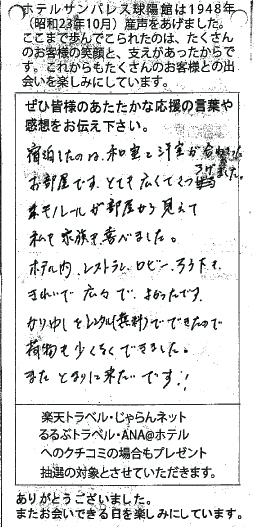 ホテルサンパレス球陽館は1948年
(昭和23年10月)産声をあげました。
ここまで歩んでこられたのは、たくさん
のお客様の笑顔と、支えがあったからで
す。これからもたくさんのお客様との出
会いを楽しみにしています。
ぜひ皆様のあたたかな応援の言葉や
感想をお伝え下さい。
宿泊したのは、和室と洋室が
お部屋です。とても広くてくつろげました。
モノレールが部屋から見えて
私も家族も喜べました。
ホテル内、レストラン、ロビー、ろう下も
きれいで広々で、よかったです。
かりゆしをレンタル(無料)でできたので
荷物も少くなくできました。
また とまりに来たいです!!
楽天トラベル・じゃらんネット
るるぶトラベル・ANA@ホテル
へのクチコミの場合もプレゼント
抽選の対象とさせていただきます。
ありがとうございました。
またお会いできる日を楽しみにしています。